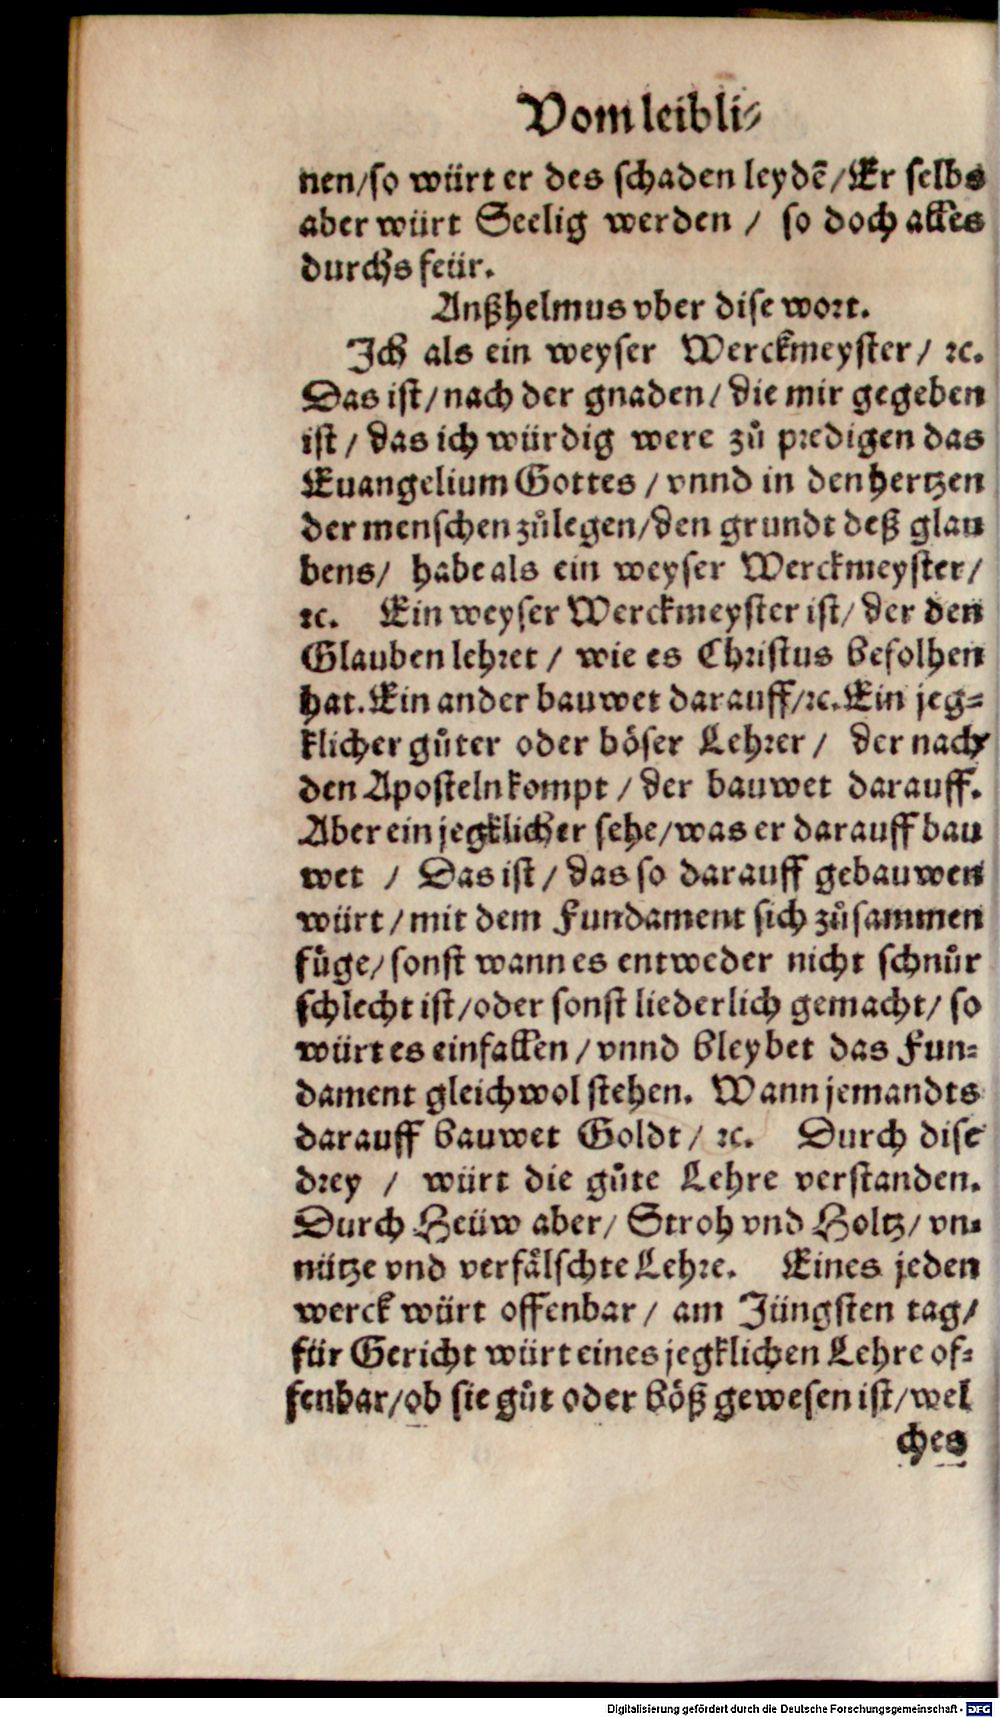 Vom leibli⸗
nen/so würt er des schaden leydẽ/Er selbs
aber würt Seelig werden / so doch alles
durchs feür.
Anßhelmus vber dise wort.
Ich als ein weyser Werckmeyster/ ꝛc.
Das ist/nach der gnaden/die mir gegeben
ist/ das ich würdig were zů predigen das
Euangelium Gottes / vnnd in den hertzen
der menschen zůlegen/den grundt deß glau
bens/ habe als ein weyser Werckmeyster/
ꝛc. Ein weyser Werckmeyster ist/der den
Glauben lehret / wie es Christus befolhen
hat. Ein ander bauwet darauff/ꝛc. Ein jeg⸗
klicher gůter oder böser Lehrer / der nach
den Aposteln kompt / der bauwet darauff.
Aber ein jegklicher sehe/was er darauff bau
wet / Das ist/ das so darauff gebauwen
würt/mit dem Fundament sich zůsammen
fůge/sonst wann es entweder nicht schnůr
schlecht ist/oder sonst liederlich gemacht/ so
würt es einfallen / vnnd bleybet das Fun⸗
dament gleichwol stehen. Wann jemandts
darauff bauwet Goldt/ ꝛc. Durch dise
drey / würt die gůte Lehre verstanden.
Durch Heüw aber/ Stroh vnd Holtz/ vn⸗
nütze vnd verfälschte Lehre. Eines jeden
werck würt offenbar / am Jüngsten tag/
für Gericht würt eines jegklichen Lehre of⸗
fenbar/ob sie gůt oder böß gewesen ist/wel
ches
Digitalisierung gefördert durch die Deutsche Forschungsgemeinschaft - DFG